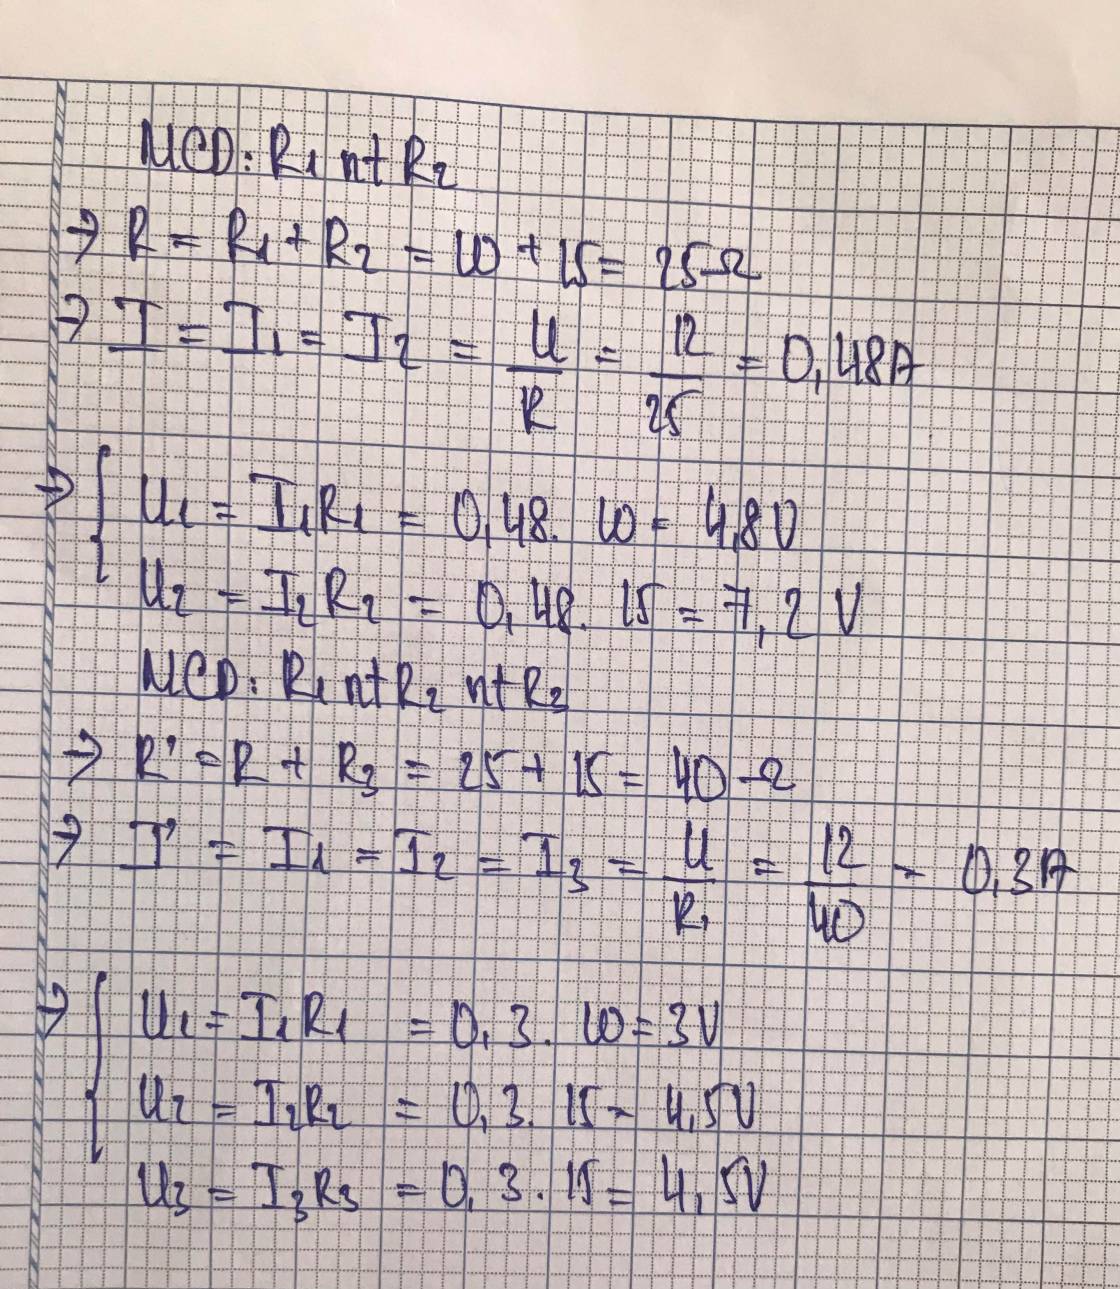 MCD: R1 nt R2
→ R = R1 + R2 = 10 + 15 = 25 Ω
→ I = I1 = I2 = U/R = 12/25 = 0,48A
→ { U1 = I1R1 = 0,48. 10 = 4,8V
U2 = I2R2 = 0,48. 15 = 7,2 V
MCD: R1 nt R2 nt R3
→ R' = R + R3 = 25 + 15 = 40 Ω
→ I' = I1 = I2 = I3 = U/R' = 12/40 = 0,3A
→ { U1 = I1R1 = 0,3. 10 = 3V
U2 = I2R2 = 0,3. 15 = 4,5V
U3 = I3R3 = 0,3. 15 = 4,5V